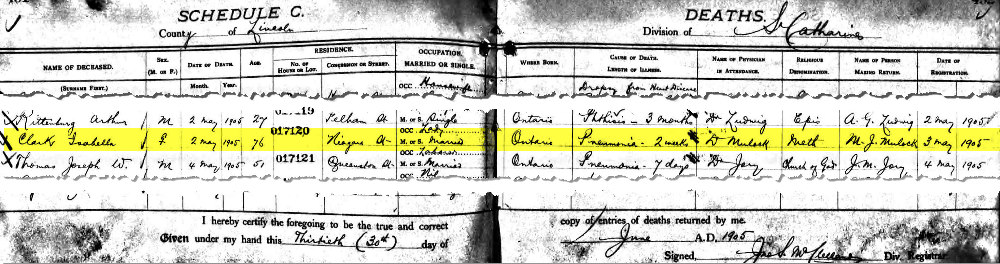 SCHEDULE C. DEATHS.
County of Lincoln Division of St Catharines
RESIDENCE. OCCUPATION.
NAME OF DECEASED. SEX. (M. OR F.) DATE OF DEATH. AGE. NO. OF HOUSE OR LOT. CONCESSION OR STREET. MARRIED OR SINGLE. WHERE BORN. CAUSE OF DEATH. LENGTH OF ILLNESS. NAME OF PHYSICIAN IN ATTENDANCE. RELIGIOUS DENOMINATION. NAME OF PERSON MAKING RETURN. DATE OF REGISTRATION.
(SURNAME FIRST.) Month. Year. OCC. Dropsy from Heart Disease
Arthur M 2 May 1905 27 19 Pelham St M. or S. Single Ontario Phthisis - 3 months Dr Ludwig Epis A. G. Ludwig 2 May 1905
OCC.
Clark Isabella F. 2 May 1905 76 017120 Niagara St M. or S. Married Ontario Pneumonia - 2 weeks Dr Mulock Meth M. J. Mulock 3 May 1905
OCC.
Thomas Joseph W. M 4 May 1905 51 017121 Queenston St M. or S. Married Ontario Pneumonia - 7 days Dr Jory Church of God J. M. Jory 4 May 1905
OCC. Nil
I hereby certify the foregoing to be the true and correct copy of entries of deaths returned by me.
Given under my hand this Thirtieth (30th) day of June A.D. 1905
Signed, Div. Registrar